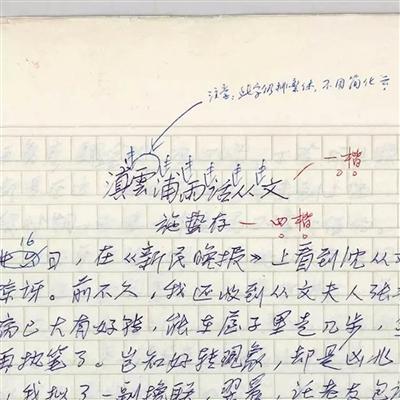 注意：此字仍排繁体，不用简化字
滇雲浦雨话从文
一楷
施蛰存
四楷
16日，在《新民晚报》上看到沈从文
惊讶。前不久，我还收到从文夫人张
病已大有好转，能在屋子里走几步，
再执笔了。岂知好转现象，却是凶兆
我拟了一副挽联，翌晨，托老友包